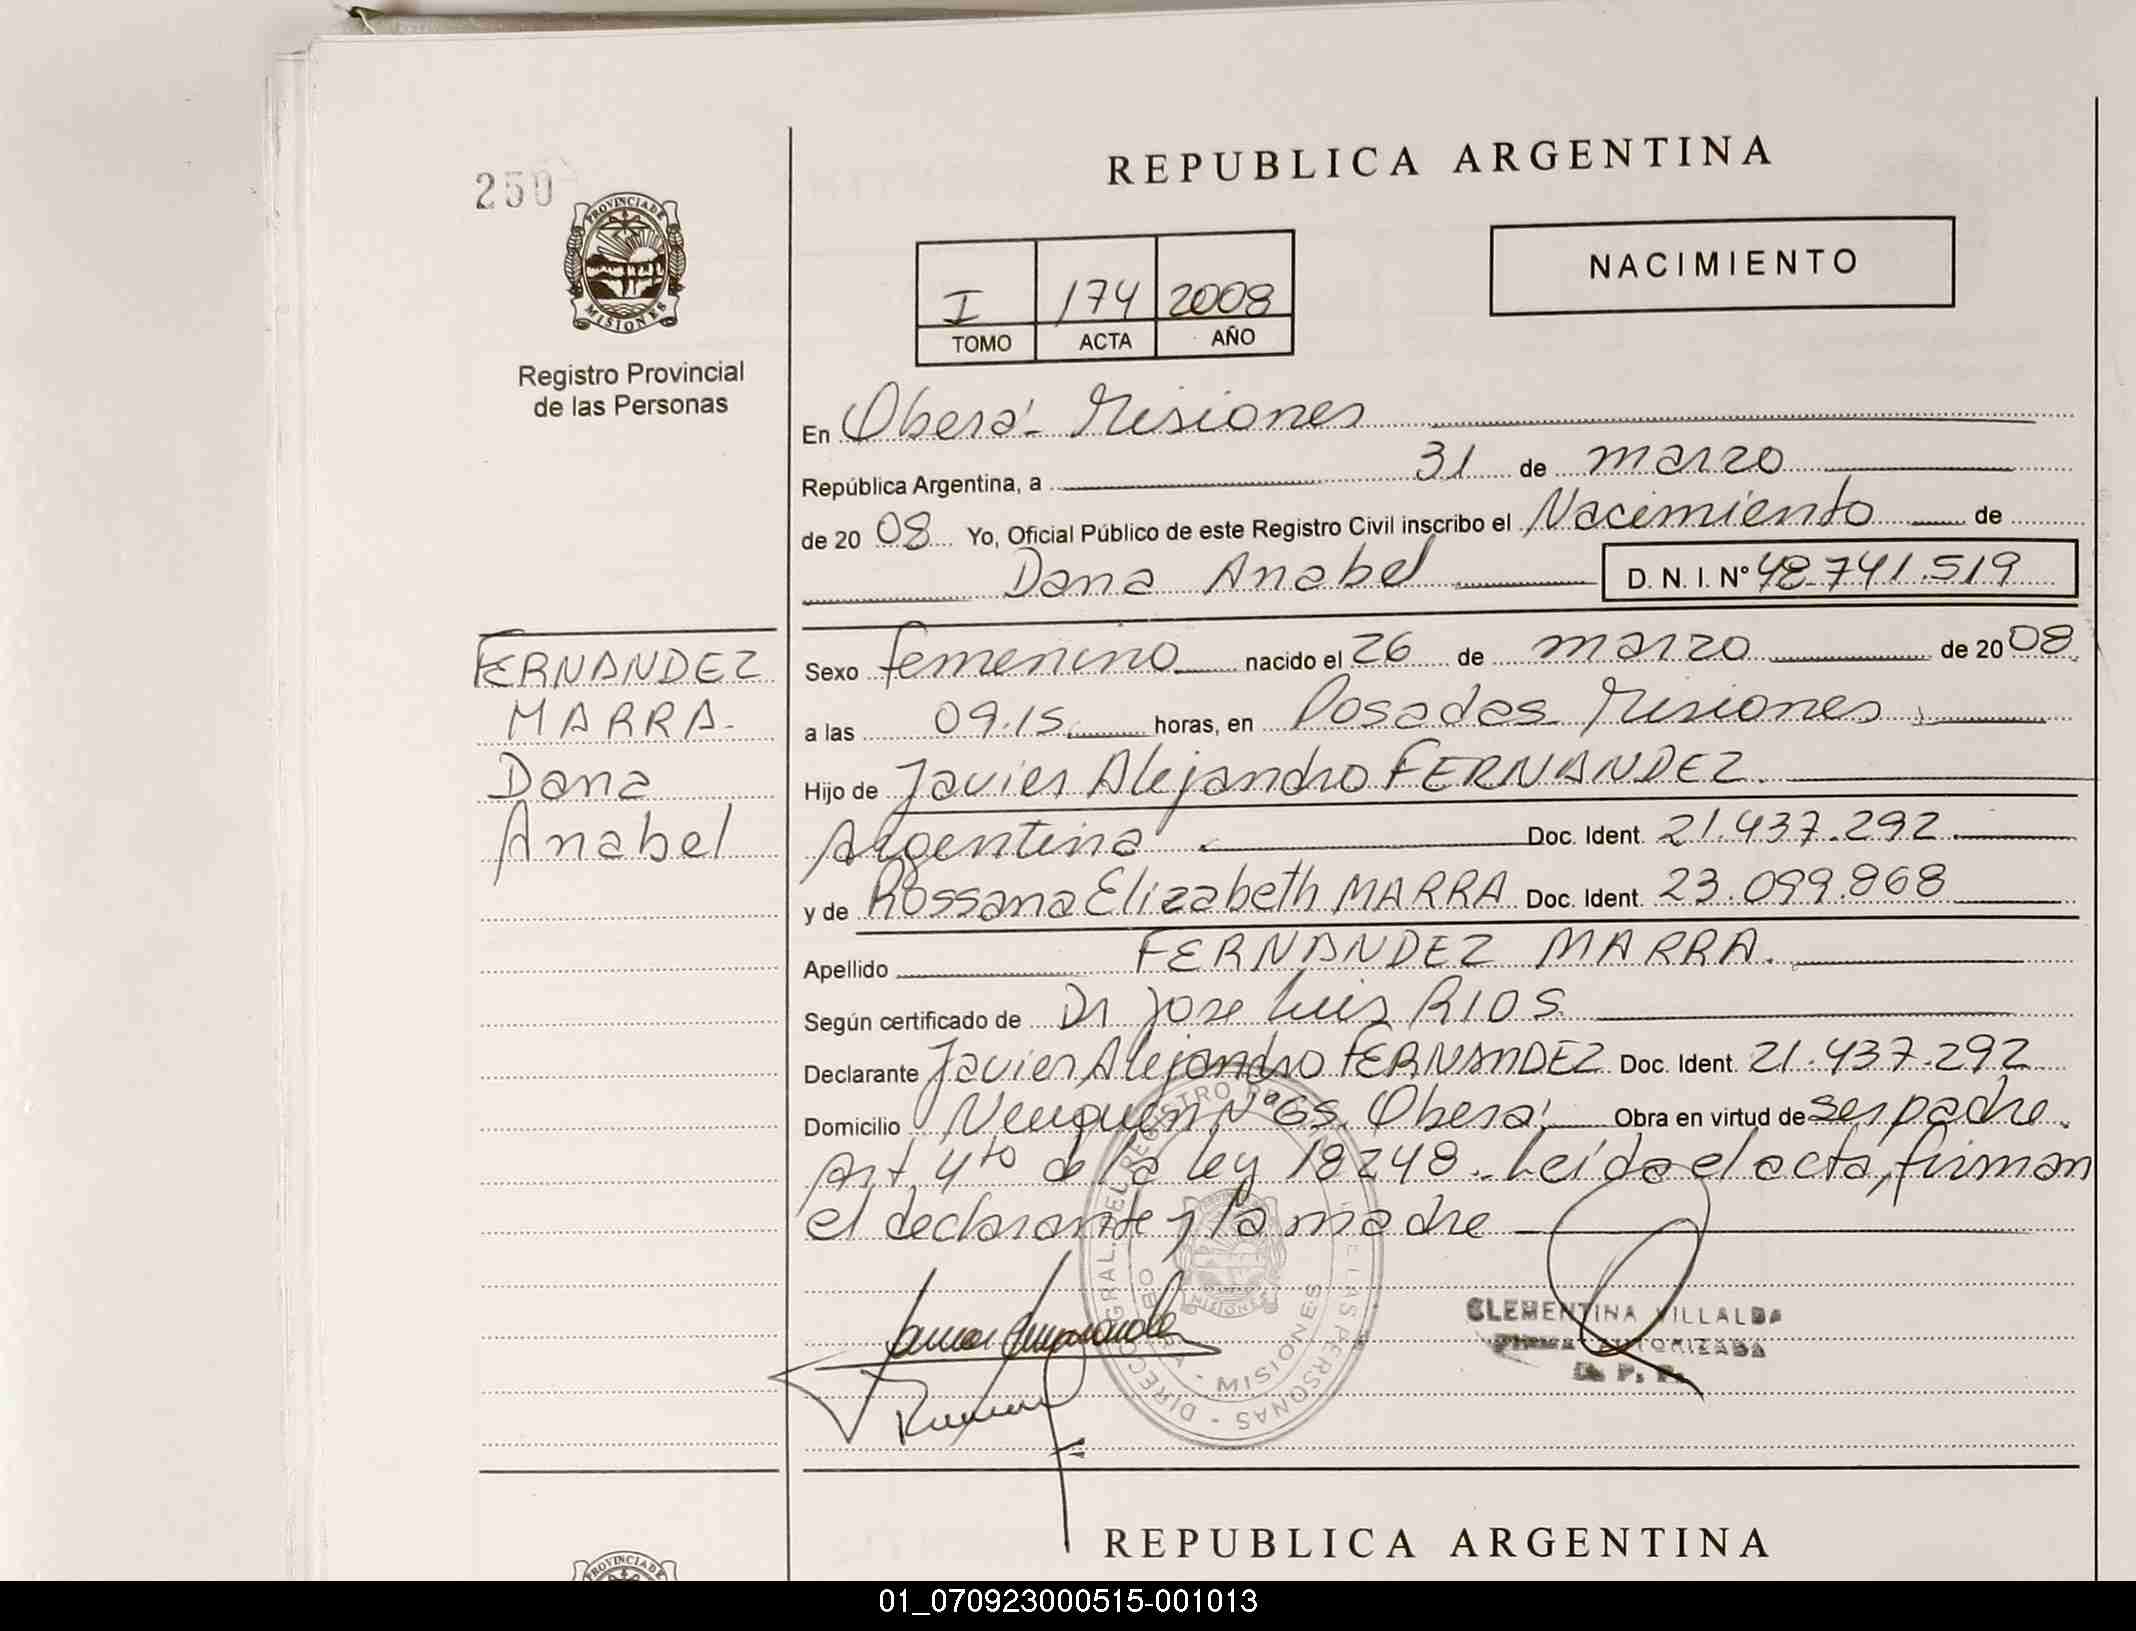 250
PROVINCIA DE
MISIONES
Registro Provincial
de las Personas
REPUBLICA ARGENTINA
NACIMIENTO
I 174 2008
TOMO ACTA AÑO
En Oberá - Misiones
República Argentina, a 31 de marzo
de 2008 Yo, Oficial Público de este Registro Civil inscribo el Nacimiento de
Dana Anabel D. N. I. Nº 48.741.519
FERNANDEZ
MARRA-
Dana
Anabel
Sexo femenino nacido el 26 de marzo de 2008
a las 09.15 horas, en Posadas Misiones
Hijo de Javier Alejandro FERNANDEZ.
Argentina Doc. Ident. 21.437.292
y de Rossana Elizabeth MARRA Doc. Ident. 23.099.868
Apellido FERNANDEZ MARRA.
Según certificado de Dr Jose Luis RIOS
Declarante Javier Alejandro FERNANDEZ Doc. Ident. 21.437.292
Domicilio Neuquen Nº 65. Oberá. Obra en virtud de ser padre.
Art. 4to de la ley 18248. Leída el acta, firman
el declarante y la madre
DIRECC. GRAL. DEL REGISTRO DE LAS PERSONAS
MISIONES
CLEMENTINA VILLALBA
FIRMA AUTORIZADA
REPUBLICA ARGENTINA
PROVINCIA DE
01_070923000515-001013